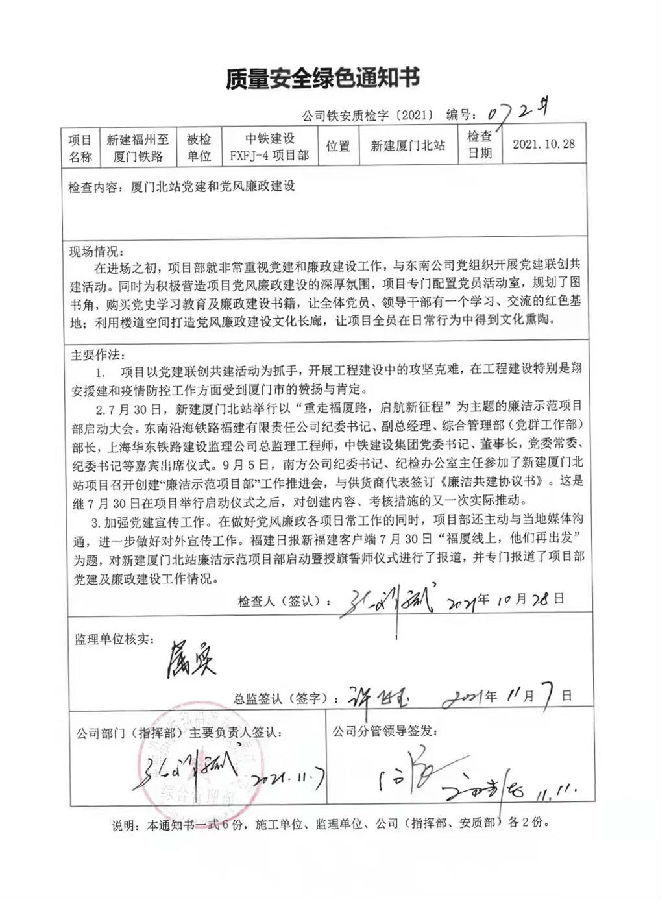 质量安全绿色通知书
公司铁安质检字〔2021〕 编号：072#
项目名称 新建福州至厦门铁路 被检单位 中铁建设FXFJ-4项目部 位置 新建厦门北站 检查日期 2021.10.28
检查内容：厦门北站党建和党风廉政建设
现场情况：
在进场之初，项目部就非常重视党建和廉政建设工作，与东南公司党组织开展党建联创共
建活动。同时为积极营造项目党风廉政建设的深厚氛围，项目专门配置党员活动室，规划了图
书角，购买党史学习教育及廉政建设书籍，让全体党员、领导干部有一个学习、交流的红色基
地；利用楼道空间打造党风廉政建设文化长廊，让项目全员在日常行为中得到文化熏陶。
主要作法：
1. 项目以党建联创共建活动为抓手，开展工程建设中的攻坚克难，在工程建设特别是翔
安援建和疫情防控工作方面受到厦门市的赞扬与肯定。
2.7月30日，新建厦门北站举行以“重走福厦路，启航新征程”为主题的廉洁示范项目
部启动大会。东南沿海铁路福建有限责任公司纪委书记、副总经理、综合管理部（党群工作部）
部长，上海华东铁路建设监理公司总监理工程师，中铁建设集团党委书记、董事长，党委常委、
纪委书记等嘉宾出席仪式。9月5日，南方公司纪委书记、纪检办公室主任参加了新建厦门北
站项目召开创建“廉洁示范项目部”工作推进会，与供货商代表签订《廉洁共建协议书》。这是
继7月30日在项目举行启动仪式之后，对创建内容、考核措施的又一次实际推动。
3.加强党建宣传工作。在做好党风廉政各项日常工作的同时，项目部还主动与当地媒体沟
通，进一步做好对外宣传工作。福建日报新福建客户端7月30日“福厦线上，他们再出发”
为题，对新建厦门北站廉洁示范项目部启动暨授旗誓师仪式进行了报道，并专门报道了项目部
党建及廉政建设工作情况。
检查人（签认）： 2021年10月28日
监理单位核实：
属实
总监签认（签字）： 2021年11月7日
公司部门（指挥部）主要负责人签认： 公司分管领导签发：
2021.11.7 11.11.
综合管理部
说明：本通知书一式6份，施工单位、监理单位、公司（指挥部、安质部）各2份。